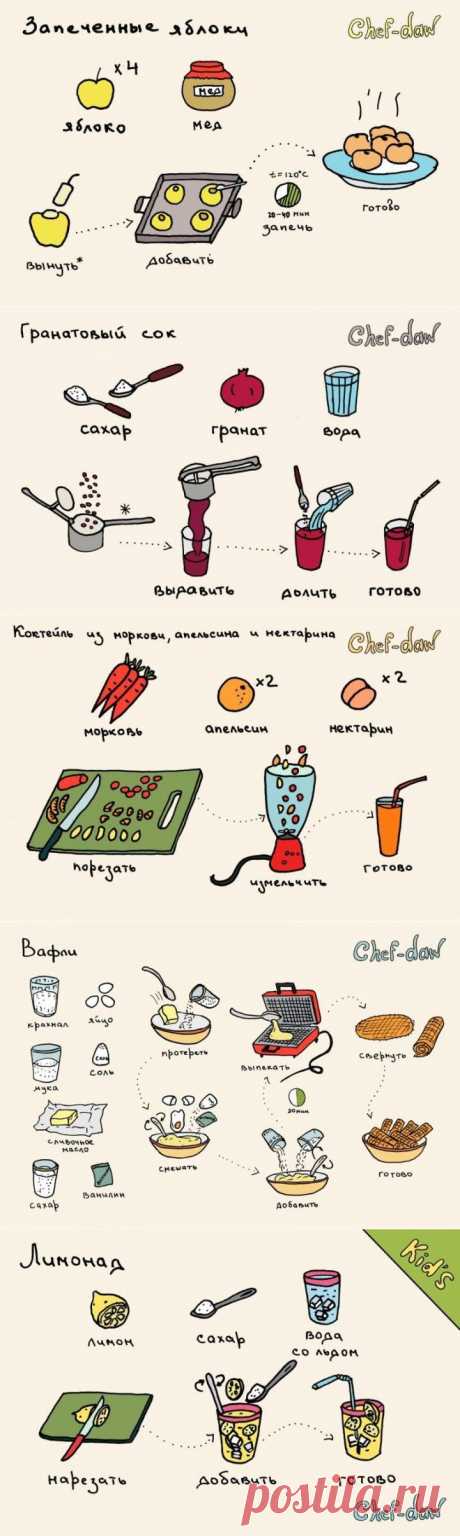 Запеченные яблоки
Chef-daw
x4
яблоко
мед
мед
t=120°C
20-40 мин
запечь
готово
вынуть*
добавить
Гранатовый сок
Chef-daw
сахар
гранат
вода
*
выдавить
долить
готово
Коктейль из моркови, апельсина и нектарина
Chef-daw
x2
x2
морковь
апельсин
нектарин
порезать
измельчить
готово
Вафли
Chef-daw
крахмал
яйцо
протереть
выпекать
свернуть
мука
соль
соль
20 мин
сливочное
масло
смешать
добавить
готово
сахар
ванилин
Лимонад
Kid's
лимон
сахар
вода
со льдом
нарезать
добавить
готово
postila.ru
Chef-daw